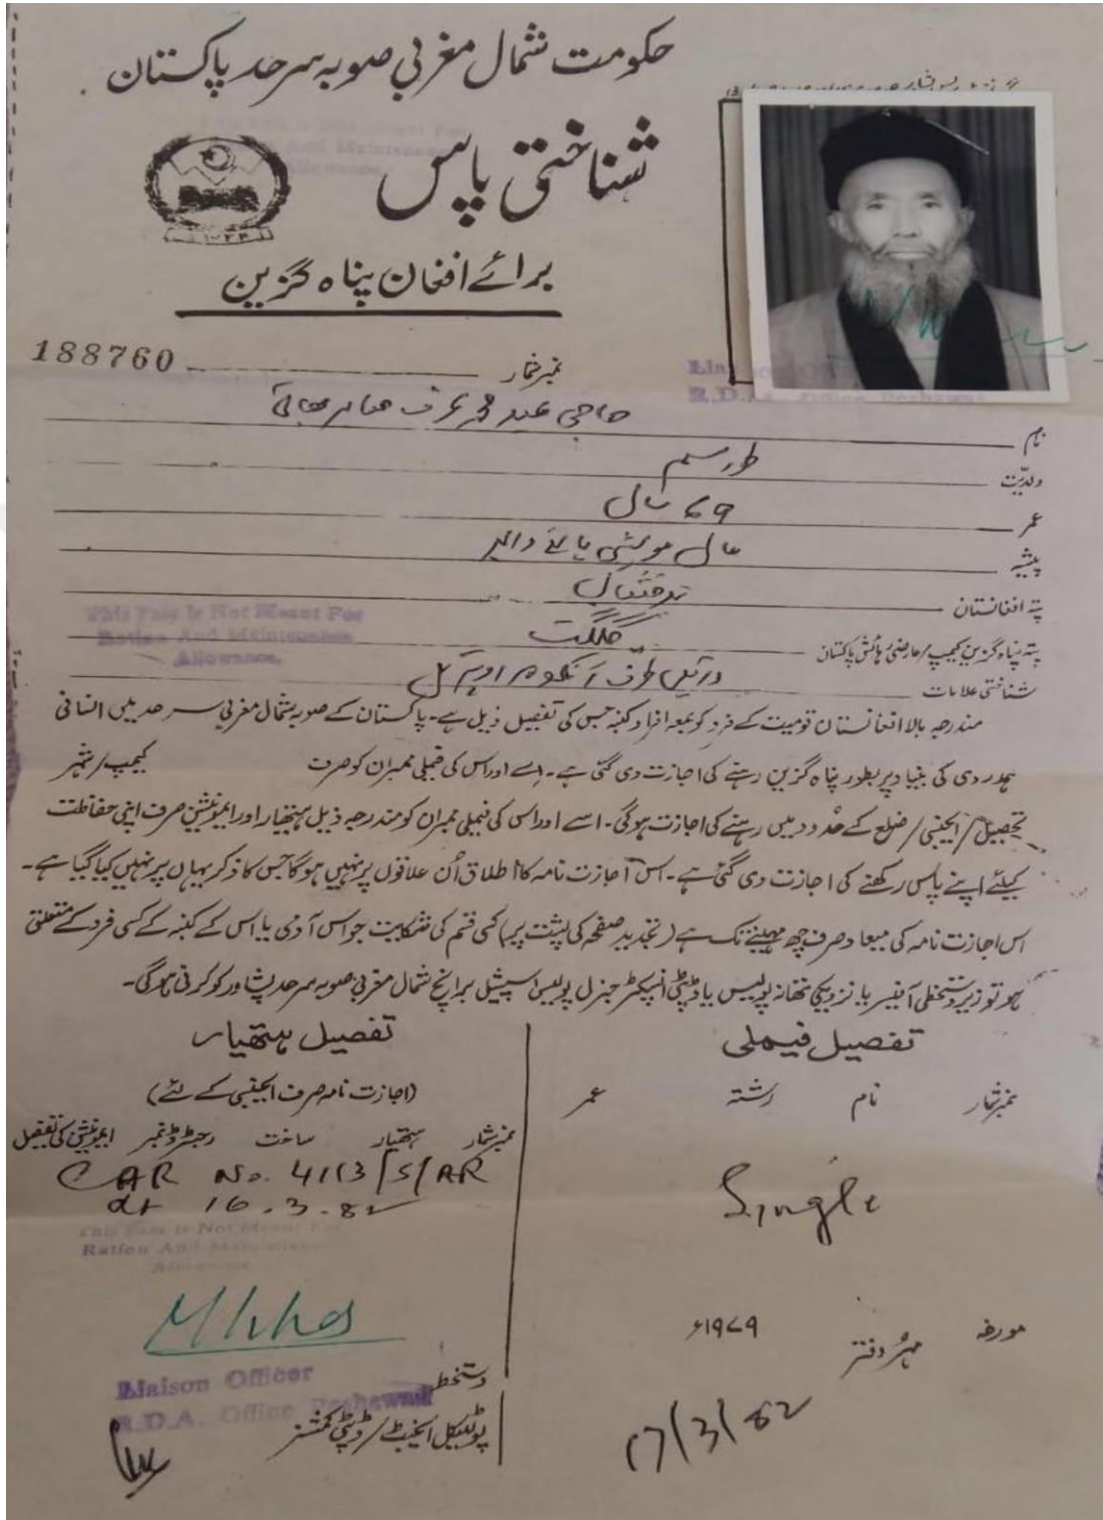 حکومت شمال مغربی صوبہ سرحد پاکستان
شناختی پاس
برائے افغان پناہ گزین
نمبر شمار 188760
نام حاجی عید محمد عرف
ولدیت
عمر 69 سال
پیشہ مال مویشی پالنے والا
پتہ افغانستان
پتہ پناہ گزین کیمپ/عارضی رہائش پاکستان گلگت
شناختی علامات
This Pass Is Not Meant For
Ration And Maintenance
Allowance.
مندرجہ بالا افغانستان قومیت کے فرد کو بمعہ افراد کنبہ جس کی تفصیل ذیل ہے۔ پاکستان کے صوبہ شمال مغربی سرحد میں انسانی
ہمدردی کی بنیاد پر بطور پناہ گزین رہنے کی اجازت دی گئی ہے۔ اسے اور اس کی فیملی ممبران کو صرف کیمپ/شہر
تحصیل/ایجنسی/ضلع کے حدود میں رہنے کی اجازت ہوگی۔ اسے اور اس کی فیملی ممبران کو مندرجہ ذیل ہتھیار اور ایمونیشن صرف اپنی حفاظت
کیلئے اپنے پاس رکھنے کی اجازت دی گئی ہے۔ اس اجازت نامہ کا اطلاق اُن علاقوں پر نہیں ہوگا جس کا ذکر یہاں پر نہیں کیا گیا ہے۔
اس اجازت نامہ کی میعاد صرف چھ مہینے تک ہے (تجدید صفحہ کی پشت پر) کسی قسم کی شکایت جو اس آدمی یا اس کے کنبہ کے کسی فرد کے متعلق
ہو تو زیر دستخطی آفیسر یا نزدیکی تھانہ پولیس یا ڈپٹی انسپکٹر جنرل پولیس اسپیشل برانچ شمال مغربی صوبہ سرحد پشاور کو کرنی ہوگی۔
تفصیل فیملی
نمبر شمار نام رشتہ عمر
Single
تفصیل ہتھیار
(اجازت نامہ صرف ایجنسی کے لئے)
نمبر شمار ہتھیار ساخت رجسٹرڈ نمبر ایمونیشن کی تفصیل
CAR No. 4113/S/AR
dt 16.3.82
This Pass Is Not Meant For
Ration And Maintenance
Allowance
مورخہ ۱۹۷۹ء
مہر دفتر
17/3/82
Liaison Officer
R.D.A. Office Peshawar
دستخط
پولیٹیکل ایجنٹ/ڈپٹی کمشنر